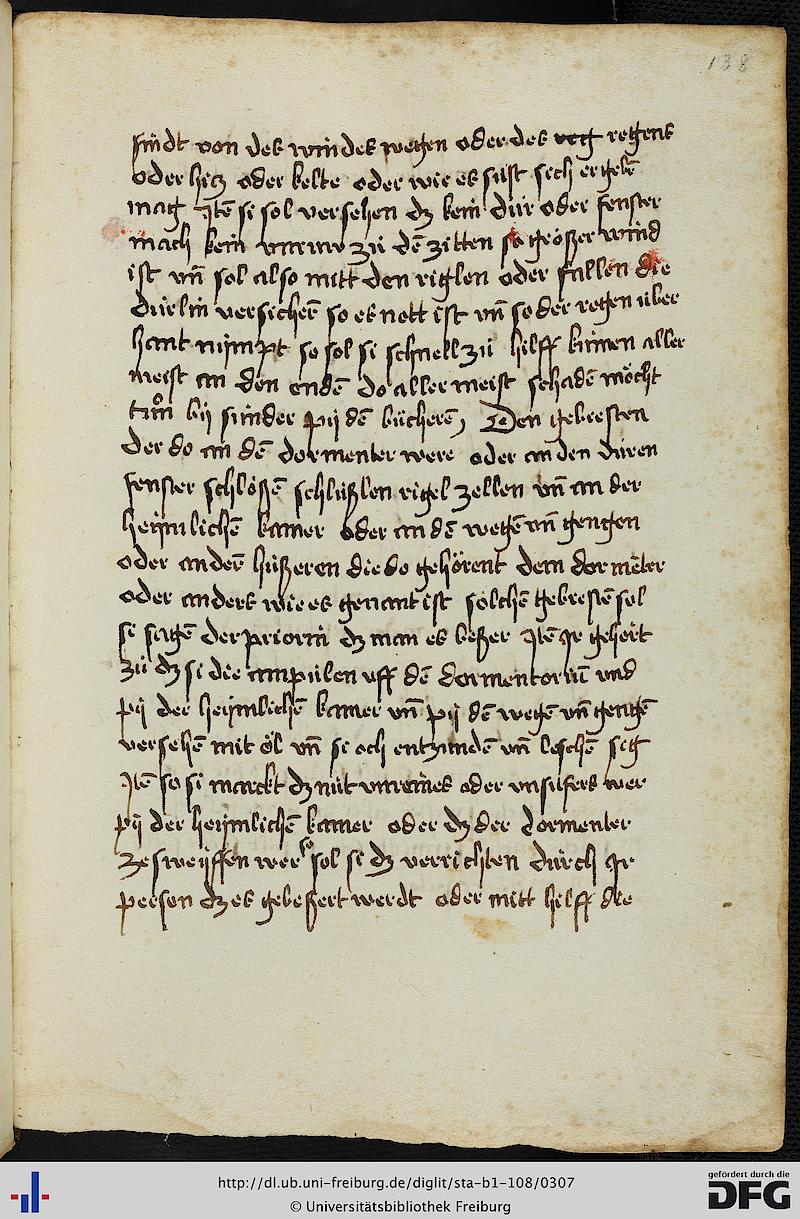 138
sindt von des windes wegen oder des reg regens
oder hicz oder kelte oder wie es sust sech ergebē
mag Jtē si sol versehen dz kein dúr oder fenster
mach kein vnruw zú dē zitten so größer wind
ist vn̄ sol also mitt den riglen oder fallen die
dúrlin versicherē so es nott ist vn̄ so der regen úber
hant nympt so sol si schnell zú hilff kumen aller
meist an den endē do aller meist schadē möcht
tún bÿ sunder pÿ dē búcherē Den gebresten
der do an dē dormenter were oder an den dúren
fenster schlößē schlúßlen rigel zellen vn̄ an der
heÿmlichē kamer oder an dē wegē vn̄ gengen
oder anderē húßeren die do gehörent dem dormēter
oder anders wie es genant ist solchē gebrestē sol
si sagē der priorin dz man es beßer Jtē Jr gehört
zú dz si die ampúlen vff dē dormentoriū vnd
pÿ der heÿmlichē kamer vn̄ pÿ dē wegē vn̄ gengē
versehē mit öl vn̄ si och entzúndē vn̄ leschē sÿg
Jtē so si marckt dz nút vnreines oder vnsufers wer
pÿ der heÿmlichē kamer oder dz der dormenter
ze sweÿffen wer so sol si dz verrichten dúrch Jr
person dz es gebeßert werdt oder mitt hilff die
http://dl.ub.uni-freiburg.de/diglit/sta-b1-108/0307
© Universitätsbibliothek Freiburg
gefördert durch die
DFG